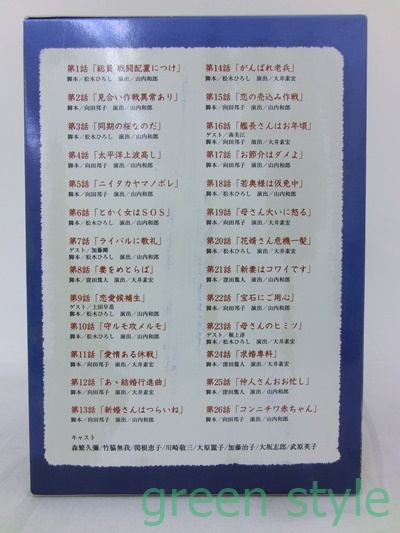 第1話「総員 戦闘配置につけ」
脚本／松木ひろし 演出／山内和郎
第2話「見合い作戦異常あり」
脚本／向田邦子 演出／山内和郎
第3話「同期の桜なのだ」
脚本／松木ひろし 演出／山内和郎
第4話「太平洋上波高し」
脚本／向田邦子 演出／山内和郎
第5話「ニイタカヤマノボレ」
脚本／向田邦子 演出／山内和郎
第6話「とかく女はSOS」
脚本／松木ひろし 演出／山内和郎
第7話「ライバルに敬礼」
ゲスト／加藤剛
脚本／松木ひろし 演出／山内和郎
第8話「妻をめとらば」
脚本／窪田篤人 演出／大井素宏
第9話「恋愛候補生」
ゲスト／土田早苗
脚本／松木ひろし 演出／山内和郎
第10話「守ルモ攻メルモ」
脚本／松木ひろし 演出／山内和郎
第11話「愛情ある休戦」
脚本／向田邦子 演出／大井素宏
第12話「あゝ結婚行進曲」
脚本／向田邦子 演出／山内和郎
第13話「新婚さんはつらいね」
脚本／向田邦子 演出／山内和郎
第14話「がんばれ老兵」
脚本／松木ひろし 演出／大井素宏
第15話「恋の売込み作戦」
脚本／向田邦子 演出／山内和郎
第16話「艦長さんはお年頃」
ゲスト／南美江
脚本／向田邦子 演出／大井素宏
第17話「お節介はダメよ」
脚本／向田邦子 演出／山内和郎
第18話「若奥様は仮免中」
脚本／松木ひろし 演出／大井素宏
第19話「母さん大いに怒る」
脚本／向田邦子 演出／大井素宏
第20話「花婿さん危機一髪」
脚本／松木ひろし 演出／大井素宏
第21話「新妻はコワイです」
脚本／窪田篤人 演出／山内和郎
第22話「宝石にご用心」
脚本／向田邦子 演出／山内和郎
第23話「母さんのヒミツ」
ゲスト／根上淳
脚本／松木ひろし 演出／大井素宏
第24話「求婚専科」
脚本／窪田篤人 演出／大井素宏
第25話「仲人さんおお忙し」
脚本／窪田篤人 演出／山内和郎
第26話「コンニチワ赤ちゃん」
脚本／松木ひろし 演出／山内和郎
キャスト
森繁久彌/竹脇無我/関根恵子/川崎敬三/大原麗子/加藤治子/大坂志郎/武原英子
green style